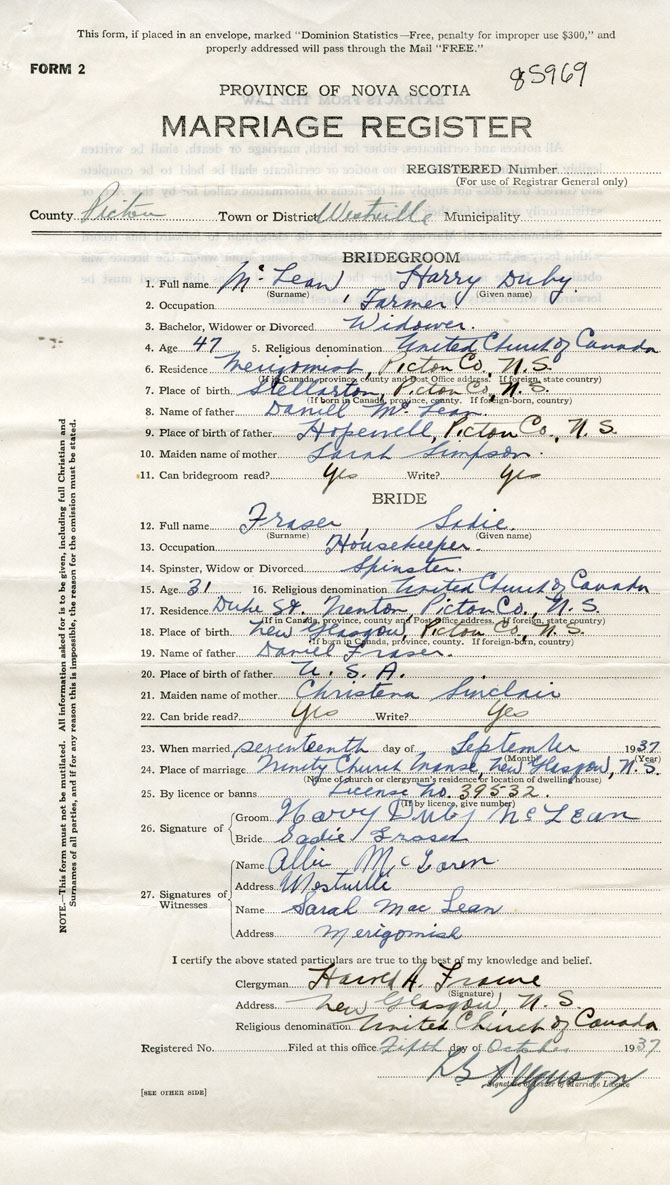 This form, if placed in an envelope, marked "Dominion Statistics—Free, penalty for improper use $300," and
properly addressed will pass through the Mail "FREE."
FORM 2
85969
PROVINCE OF NOVA SCOTIA
MARRIAGE REGISTER
REGISTERED Number
(For use of Registrar General only)
County Picton Town or District Westville Municipality
BRIDEGROOM
1. Full name McLean Harry Duby.
(Surname) (Given name)
2. Occupation Farmer
3. Bachelor, Widower or Divorced Widower.
4. Age 47 5. Religious denomination United Church of Canada
6. Residence Merigomish, Picton Co., N.S.
(If in Canada, province, county and Post Office address. If foreign, state country)
7. Place of birth Stellarton, Picton Co., N.S.
(If born in Canada, province, county. If foreign-born, country)
8. Name of father Daniel McLean.
9. Place of birth of father Hopewell, Picton Co., N.S.
10. Maiden name of mother Sarah Simpson.
11. Can bridegroom read? Yes Write? Yes
BRIDE
12. Full name Fraser, Sadie.
(Surname) (Given name)
13. Occupation Housekeeper.
14. Spinster, Widow or Divorced Spinster.
15. Age 31 16. Religious denomination United Church of Canada
17. Residence Duke St. Trenton, Picton Co., N.S.
(If in Canada, province, county and Post Office address. If foreign, state country)
18. Place of birth New Glasgow, Picton Co., N.S.
(If born in Canada, province, county. If foreign-born, country)
19. Name of father Daniel Fraser.
20. Place of birth of father U.S.A.
21. Maiden name of mother Christena Sinclair
22. Can bride read? Yes Write? Yes
23. When married seventeenth day of September 1937
(Month) (Year)
24. Place of marriage Trinity Church Manse, New Glasgow, N.S.
(Name of church or clergyman's residence or location of dwelling house)
25. By licence or banns License No. 39532.
(If by licence, give number)
26. Signature of Groom Harry Duby McLean
Bride Sadie Fraser
27. Signatures of Witnesses
Name Albie McLaren
Address Westville
Name Sarah MacLean
Address Merigomish
I certify the above stated particulars are true to the best of my knowledge and belief.
Clergyman Harold A.
(Signature)
Address New Glasgow, N.S.
Religious denomination United Church of Canada
Registered No. Filed at this office Fifth day of October 1937
Ferguson
Signature of Issuer of Marriage Licence
[SEE OTHER SIDE]
NOTE.—This form must not be mutilated. All information asked for is to be given, including full Christian and
Surnames of all parties, and if for any reason this is impossible, the reason for the omission must be stated.